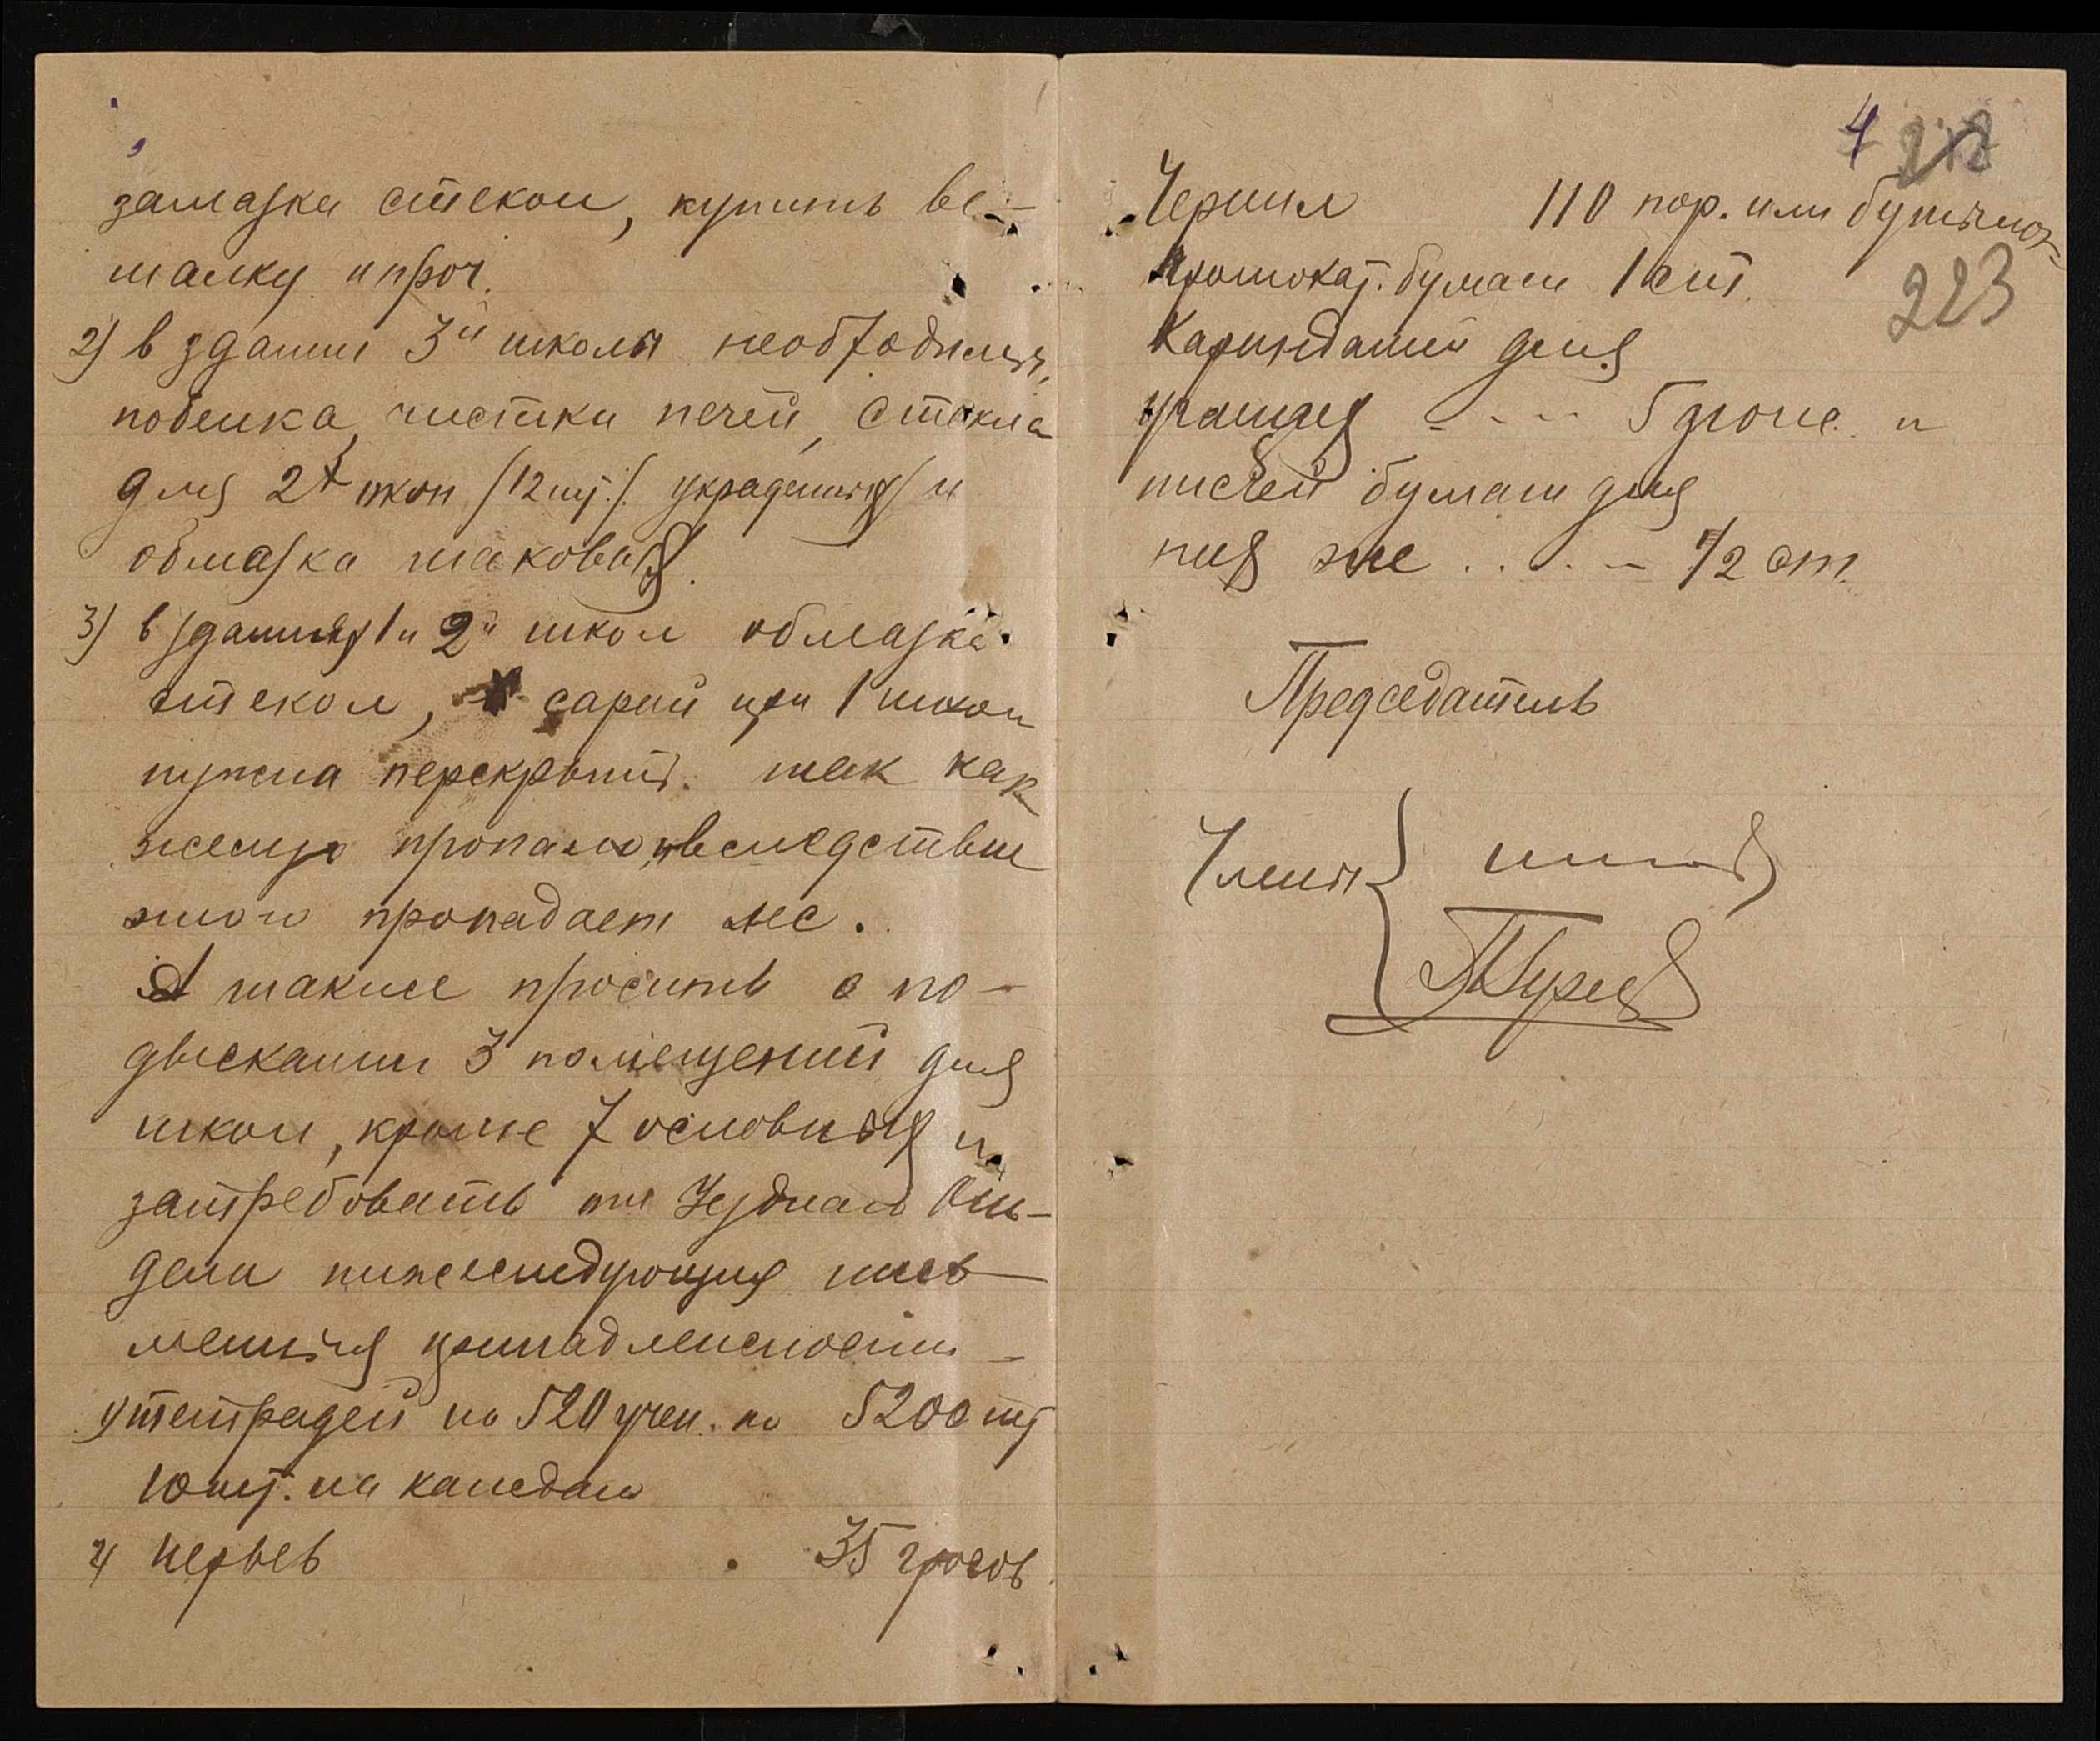 замазка стекол, купить ве-
шалку и проч.
2) в здании 3й школы необходимы,
побелка, чистки печей, стекла
для 2х окон (12 шт. украденных) и
обмазка таковых.
3) в зданиях 1 и 2й школ обмазка
стекол, сарай при 1 школ
нужна перекрыть. так как
железо пропало, вследствие
этого пропадает лес.
А также просить о по-
дыскании 3 помещений для
школ, кроме 7 основных и
затребовать от Уездного От-
дела нижеследующия пись-
менныя принадлежности -
1) тетрадей на 520 учен. по 5200 шт
10 шт. на каждаго
2) перьев . 35 гросов
4 212
Чернил 110 пор. или бутылок
223
Промокат. бумаги 1 ст.
Карандашей для
учащихся - - - 5 гросс. и
писчей бумаги для
них же . . . . - 1/2 ст.
Председатель
Члены